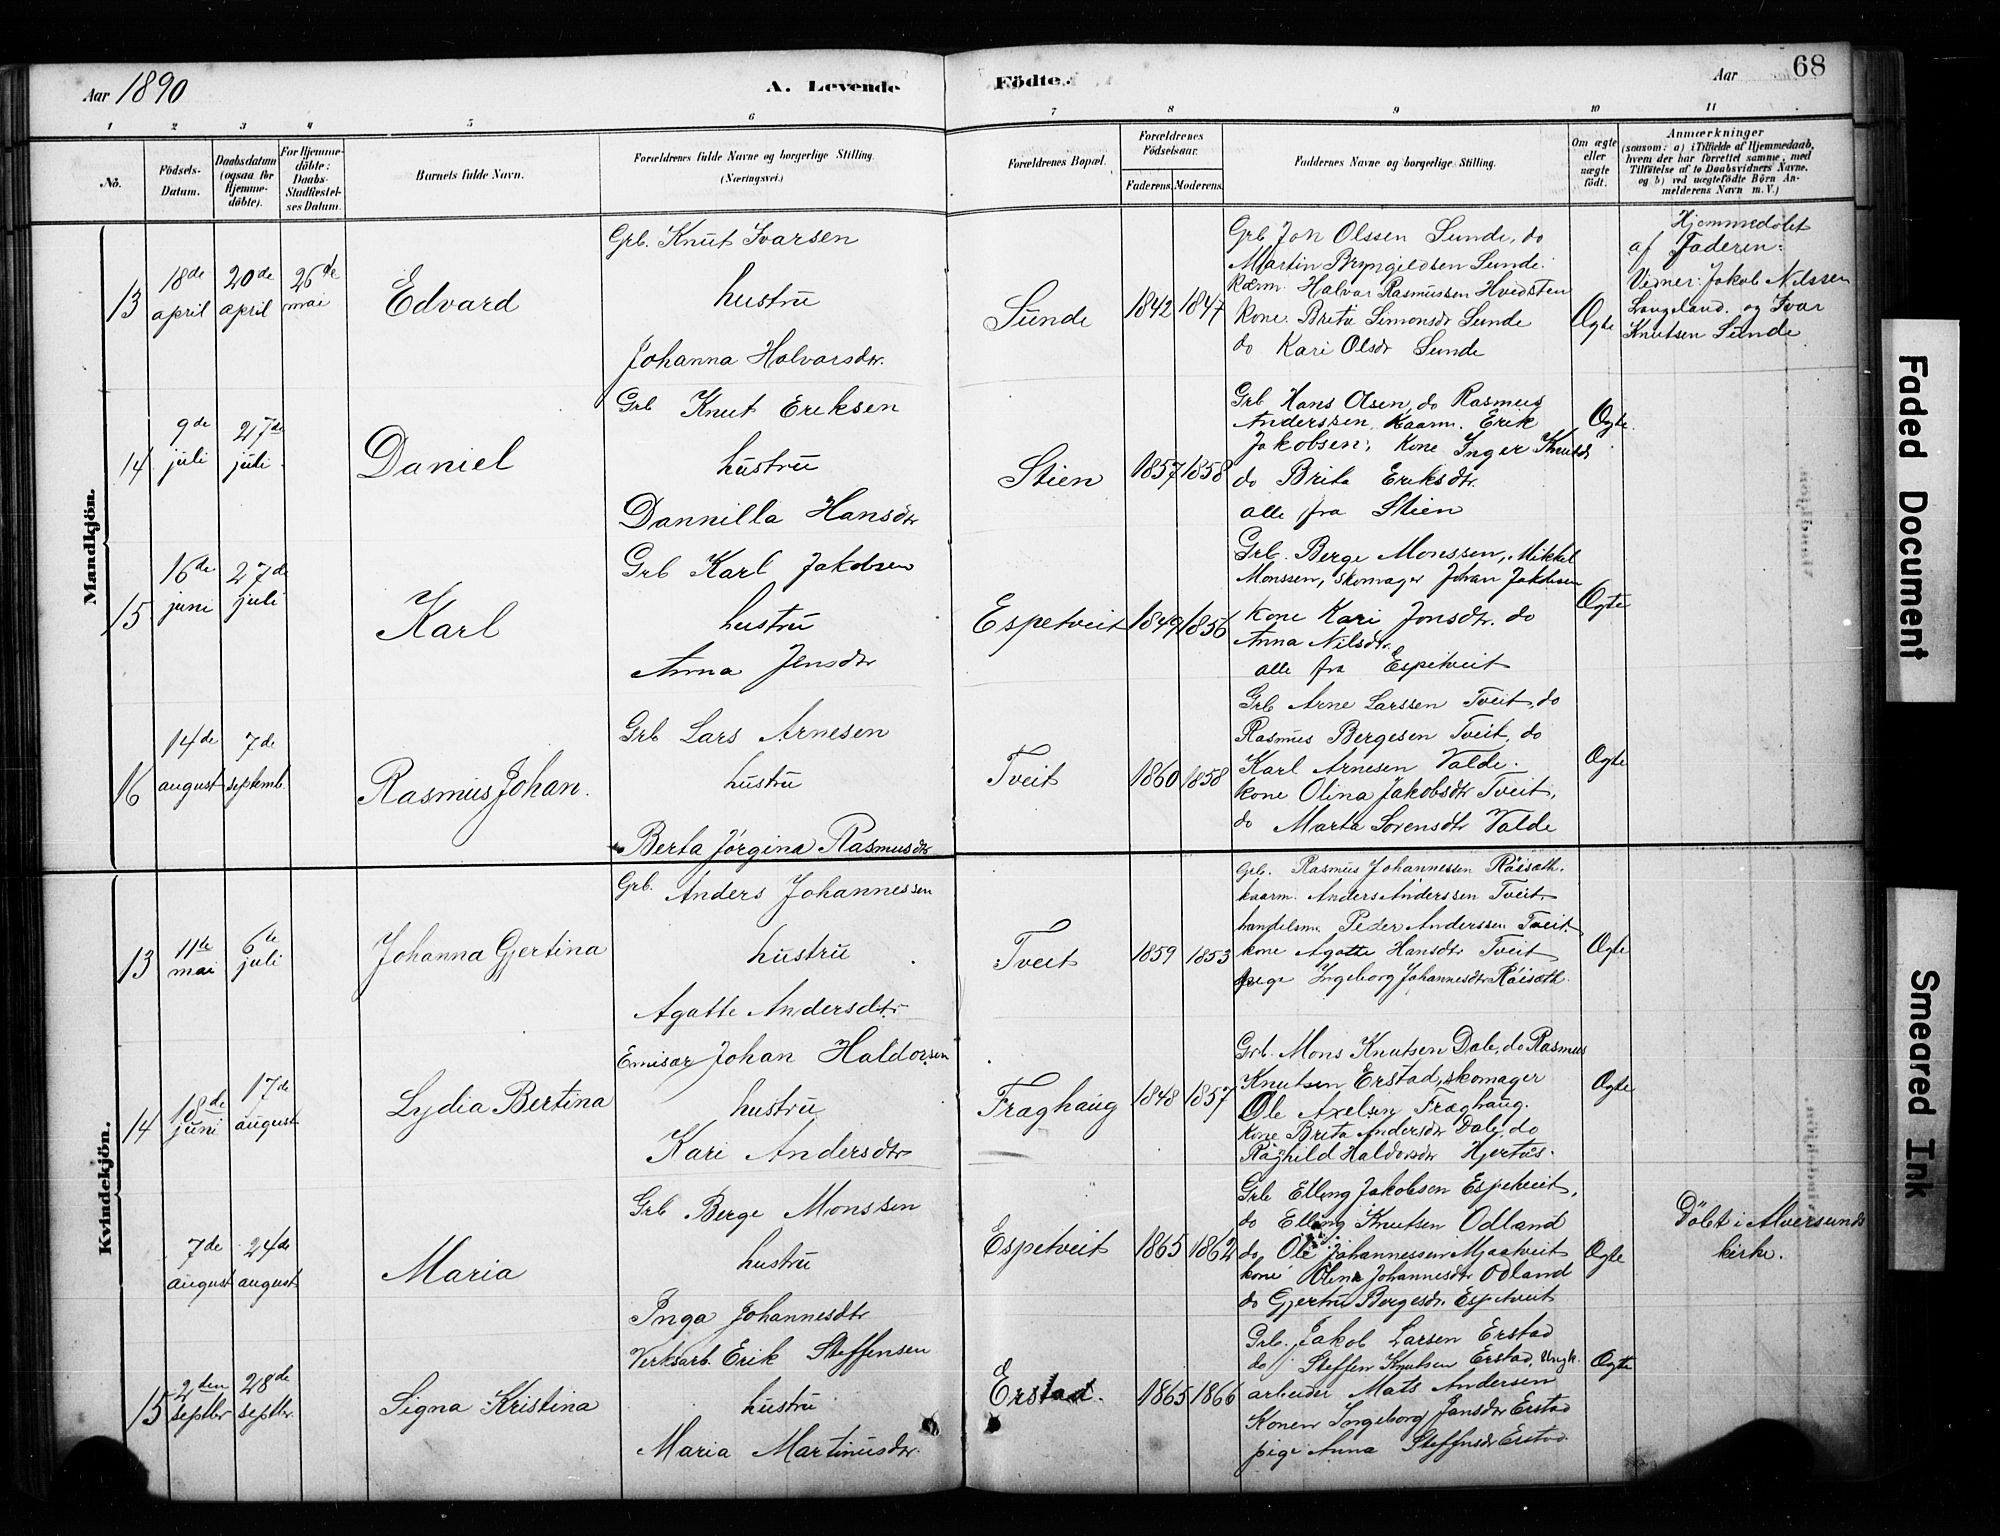 Aar 1890
A. Levende
Födte.
Aar
68
1 2 3 4 5 6 7 8 9 10 11
No.
Födsels-
Datum.
Daabsdatum
(ogsaa for
Hjemme-
döbte).
For Hjemme-
döbte:
Daabs-
Stadfæstel-
ses Datum.
Barnets fulde Navn.
Forældrenes fulde Navne og borgerlige Stilling
(Næringsvei.)
Forældrenes Bopæl.
Forældrenes
Födselsaar.
Faderens.
Moderens.
Faddernes Navne og borgerlige Stilling.
Om ægte
eller
uægte
födt.
Anmærkninger
(saasom: a) i Tilfælde af Hjemmedaab,
hvem der har forrettet samme, med
Tilföielse af to Daabsvidners Navne,
og b) ved uægtefödte Börn An-
melderens Navn m. V.)
Mandkjön.
13
18de
april
20de
april
26de
mai
Edvard
Grb. Knut Ivarsen
hustru
Johanna Halvorsdtr.
Sunde
1842
1847
Grb Jon Olssen Sunde, do
Martin Bryngeldsen Sunde.
kaarm. Halvar Rasmussen Hvidsten
Kone. Brita Simonsdr Sunde
do Kari Olsdr Sunde
Ægte
Hjemmedøbt
af Faderen:
Vidner: Jakob Nilssen
Langeland. og Ivar
Knutsen Sunde
14
9de
juli
27de
juli.
Daniel
Grb Knut Eriksen
hustru
Dannilla Hansdtr
Stien
1857
1858
Grb Hans Olsen, do Rasmus
Anderssen, Kaarm. Erik
Jakobsen; Kone Inger Knutsdr
do Brita Eriksdtr.
alle fra Stien
Ægte.
15
16de
juni
27de
juli
Karl
Grb Karl Jakobsen
hustru
Anna Jensdtr
Espetveit
1849
1856
Grb. Berge Monssen, Mikkel
Monssen, Skomager Johan Jakobsen
Kone Kari Jonsdtr. do
Anna Nilsdtr.
alle fra Espetveit
Ægte
16
14de
august
7de
septemb.
Rasmus Johan.
Grb Lars Arnesen
hustru
Berta Jørgina Rasmusdtr
Tveit
1860
1858
Grb Arne Larssen Tveit, do
Rasmus Bergesen Tveit, do
Karl Arnesen Valde.
Kone Olina Jakobsdtr Tveit,
do Marta Sorensdtr Valde
Ægte
Kvindekjön.
13
11te
mai
6te
juli
Johanna Gjertina
Grb. Anders Johannessen
hustru
Agatte Andersdtr
Tveit
1859
1853
Grb. Rasmus Johannessen Röisæth.
kaarm. Anders Anderssen Tveit,
handelsm. Peder Anderssen Tveit.
kone Agatte Hansdtr Tveit
pige Ingeborg Johannesdtr Röisæth.
Ægte
14
18de
juni
17de
august
Lydia Bertina
Emisær Johan Haldorsen
hustru
Kari Andersdtr
Fræghaug
1848
1857
Grb. Mons Knutsen Dale, do Rasmus
Knutsen Erstad, skomager
Ole Axelsen Fræghaug.
Kone Brita Andersdtr Dale, do
Raghild Haldorsdtr Hjertas.
Ægte
7de
august
24de
august
Maria
Grb Berge Monssen
hustru
Inga Johannesdtr
Espetveit
1865
1862
Grb Elling Jakobsen Espetveit,
do Elling Knutsen Odland
do, Ole Johannessen Mjaatveit
kone Olina Johannesdtr Odland
do Gjertru Bergesdr. Espetveit
Ægte
Döbt i Alversund
kirke.
15
2den
septbr
28de
septbr.
Signa Kristina
Verksarb. Erik Steffensen
hustru
Maria Martinusdtr.
Erstad.
1865
1866
Grb. Jakob Larsen Erstad
do Steffen Knutsen Erstad, Ungk.
arbeider Mats Andersen
Konen Ingeborg Jansdtr Erstad
pige Anna Steffensdr Erstad
Ægte
Faded Document
Smeared Ink